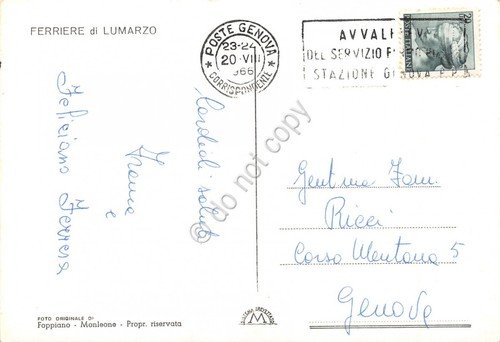 FERRIERE di LUMARZO
POSTE GENOVA
23-24
20·VIII
966
CORRISPONDENZE
AVVALE
DEL SERVIZIO F
STAZIONE GENOVA P.P.
Cordiali saluti
Franca
e
Feliciano Ferrera
Gent.ma Fam.
Ricci
Corso Mentana 5
Genova
do not copy
FOTO ORIGINALE DI
Foppiano - Monleone - Propr. riservata
M